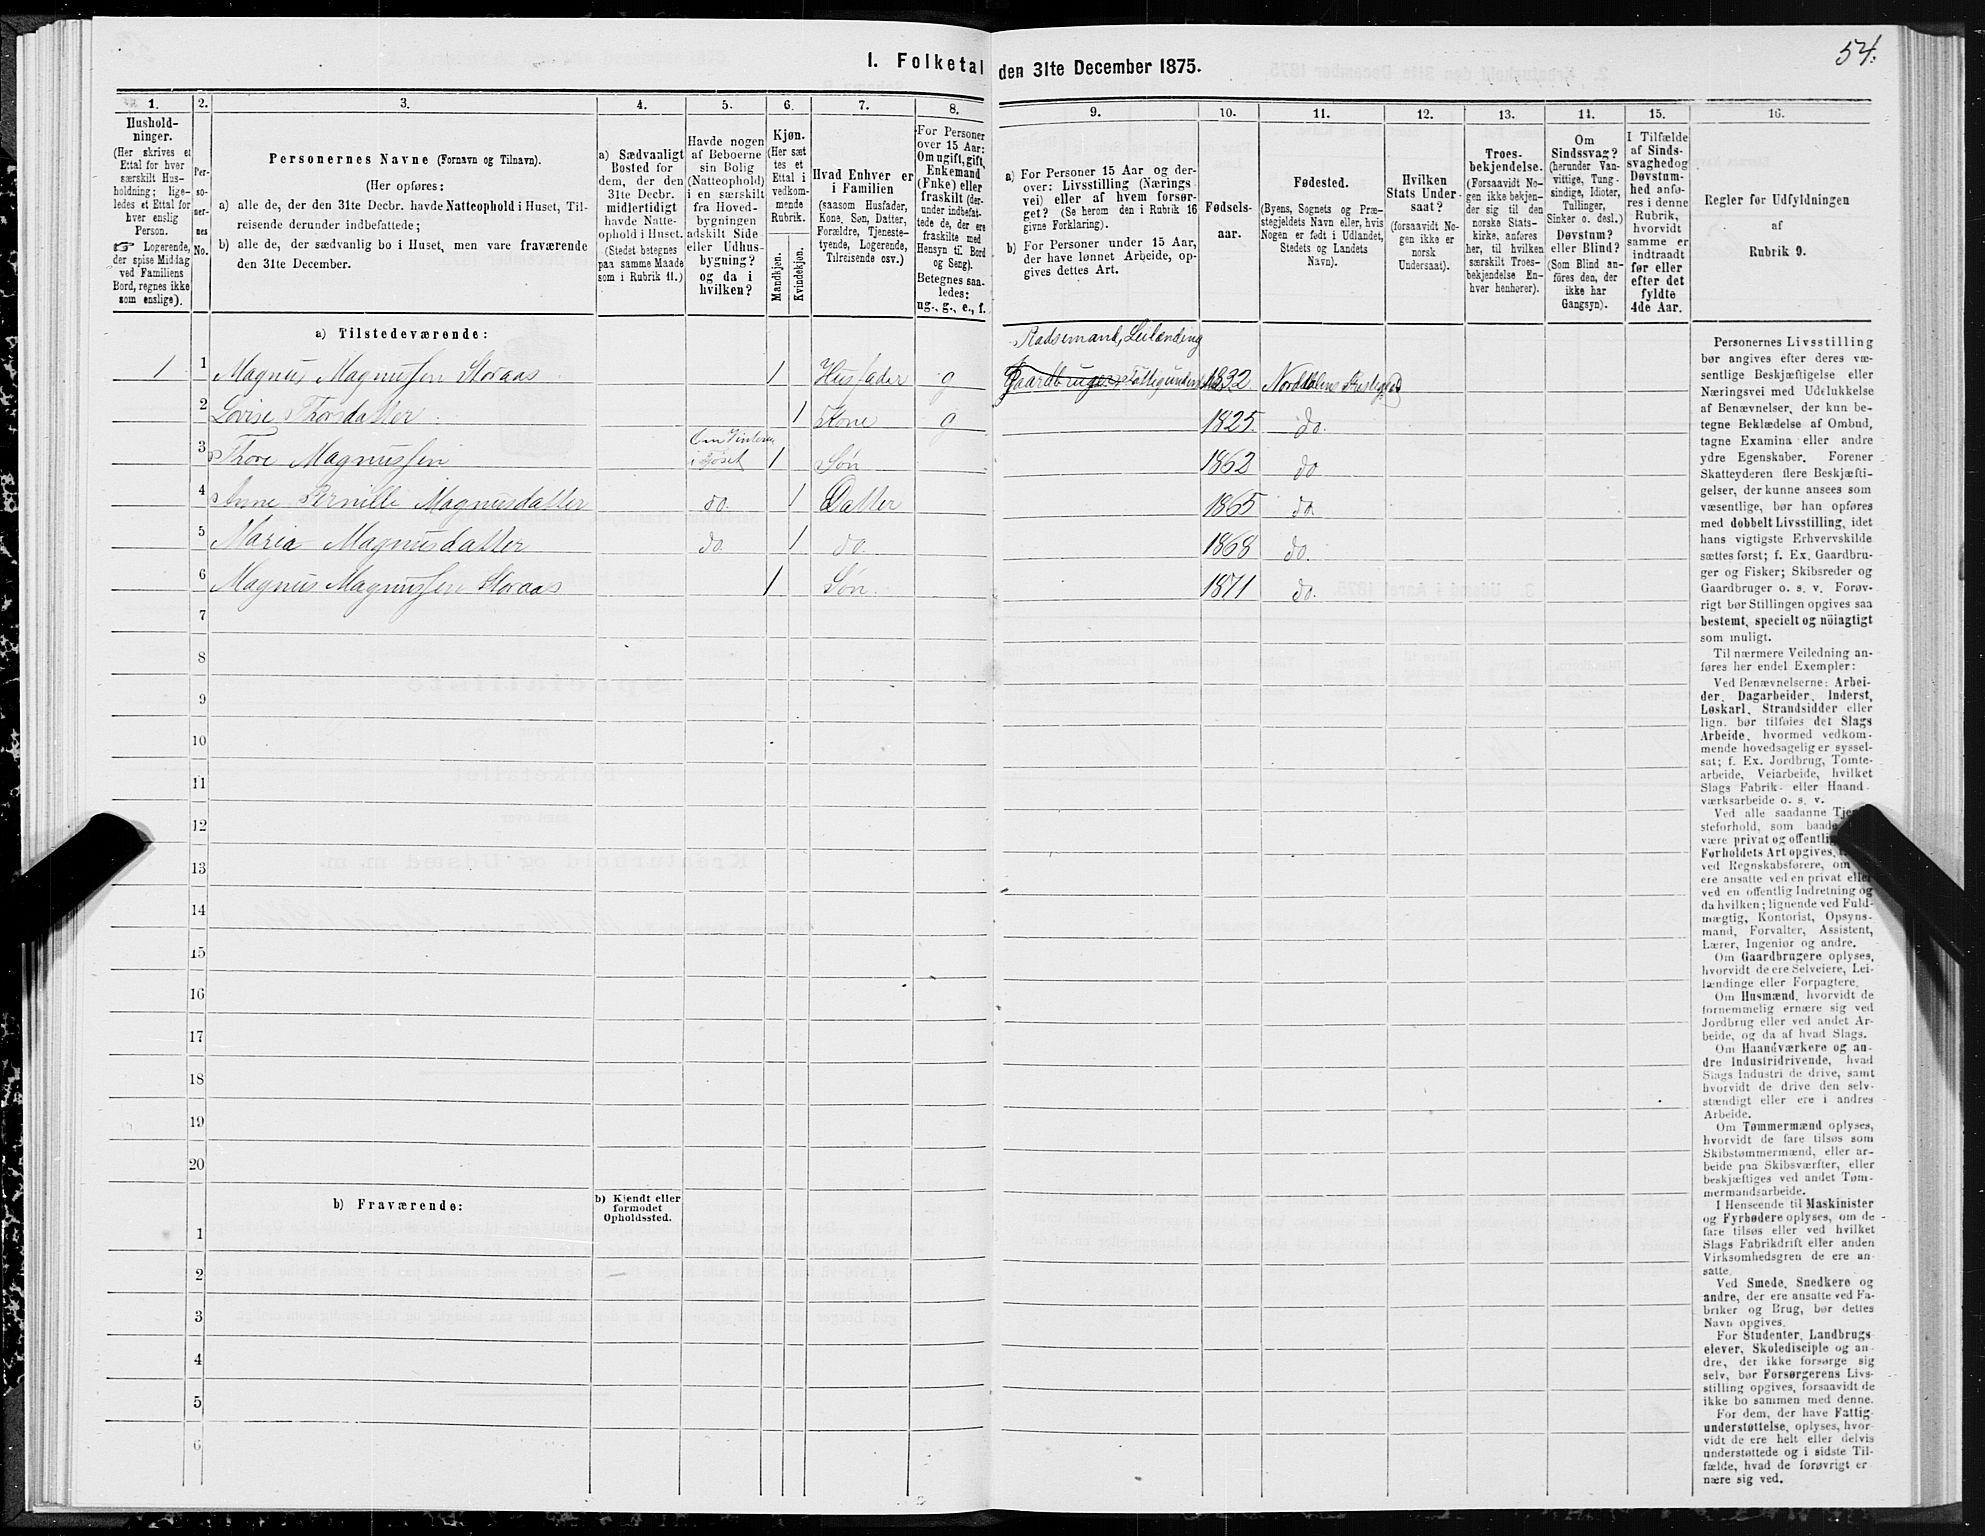 54.
I. Folketal den 31te December 1875.
1.
Hushold-
ninger.
(Her skrives et
Ettal for hver
særskilt Hus-
holdning; lige-
ledes et Ettal for
hver enslig
Person.
☞ Logerende,
der spise Middag
ved Familiens
Bord, regnes ikke
som enslige).
2.
Per-
so-
ner-
nes
No.
3.
Personernes Navne (Fornavn og Tilnavn).
(Her opføres:
a) alle de, der den 31te Decbr. havde Natteophold i Huset, Til-
reisende derunder indbefattede;
b) alle de, der sædvanlig bo i Huset, men vare fraværende
den 31te December.
4.
a) Sædvanligt
Bosted for
dem, der den
31te Decbr.
midlertidigt
havde Natte-
ophold i Huset.
(Stedet betegnes
paa samme Maade
som i Rubrik 11.)
5.
Havde nogen
af Beboerne
sin Bolig
(Natteophold)
i en særskilt
fra Hoved-
bygningen
adskilt Side-
eller Udhus-
bygning?
og da i
hvilken?
6.
Kjøn.
(Her sæt
tes et
Ettal i
vedkom-
mende
Rubrik.
Mandkjøn.
Kvindekjøn.
7.
Hvad Enhver er
i Familien
(saasom Husfader,
Kone, Søn, Datter,
Forældre, Tjeneste-
tyende, Logerende,
Tilreisende osv.)
8.
For Personer
over 15 Aar:
Om ugift, gift,
Enkemand
(Enke) eller
fraskilt (der-
under indbefat-
tede de, der ere
fraskilte med
Hensyn til Bord
og Seng).
Betegnes saa-
ledes:
ug., g., e., f.
9.
a) For Personer 15 Aar og der-
over: Livsstilling (Nærings
vei) eller af hvem forsør-
get? (Se herom den i Rubrik 16
givne Forklaring).
b) For Personer under 15 Aar,
der have lønnet Arbeide, op-
gives dettes Art.
10.
Fødsels-
aar.
11.
Fødested.
(Byens, Sognets og Præ-
stegjeldets Navn eller, hvis
Nogen er født i Udlandet,
Stedets og Landets
Navn).
12.
Hvilken
Stats Under-
saat?
(forsaavidt No-
gen ikke er
norsk
Undersaat).
13.
Troes-
bekjendelse.
(Forsaavidt No-
gen ikke bekjen-
der sig til den
norske Stats-
kirke, anføres
her, til hvilken
særskilt Troes-
bekjendelse En-
hver henhører).
14.
Om
Sindssvag?
(herunder Van-
vittige, Tung-
sindige, Idioter,
Tullinger,
Sinker o. desl.)
Døvstum?
eller Blind?
(Som Blind an-
føres den, der
ikke har
Gangsyn).
15.
I Tilfælde
af Sinds-
svaghed og
Døvstum-
hed anfø-
res i denne
Rubrik,
hvorvidt
samme er
indtraadt
før eller
efter det
fyldte
4de Aar.
16.
Regler for Udfyldningen
af
Rubrik 9.
a) Tilstedeværende:
Leilænding
1 1 Magnus Magnussen Storaas 1 Husfader g Gaardbruger 1832
2 Lovise Thorsdatter 1 Kone g 1825. do.
3 Thore Magnussen 1 Søn 1862 do
4 Anne Pernille Magnusdatter do. 1 Datter 1865 do.
5 Maria Magnusdatter do. 1 do. 1868 do.
6 Magnus Magnussen Storaas 1 Søn 1871 do.
7
8
9
10
11
12
13
14
15
16
17
18
19
20
b) Fraværende:
b) Kjendt eller
formodet
Opholdssted.
1
2
3
4
5
6
Personernes Livsstilling
bør angives efter deres væ-
sentlige Beskjæftigelse eller
Næringsvei med Udelukkelse
af Benævnelser, der kun be-
tegne Beklædelse af Ombud,
tagne Examina eller andre
ydre Egenskaber. Forener
Skatteyderen flere Beskjæfti-
gelser, der kunne ansees som
væsentlige, bør han opføres
med dobbelt Livsstilling, idet
hans vigtigste Erhvervskilde
sættes først; f. Ex. Gaardbru-
ger og Fisker; Skibsreder og
Gaardbruger o. s. v. Forøv-
rigt bør Stillingen opgives saa
bestemt, specielt og nöiagtigt
som muligt.
Til nærmere Veiledning an-
føres her endel Exempler:
Ved Benævnelserne: Arbei-
der, Dagarbeider, Inderst,
Løskarl, Strandsidder eller
lign. bør tilføies det Slags
Arbeide, hvormed vedkom-
mende hovedsagelig er syssel-
sat; f. Ex. Jordbrug, Tomte-
arbeide, Veiarbeide, hvilket
Slags Fabrik- eller Haand-
værksarbeide o. s. v.
Ved alle saadanne
steforhold, som baade
være privat og offentlig
Forholdets Art opgives,
ved Regnskabsførere, om
ere ansatte ved en privat eller
ved en offentlig Indretning og
da hvilken; lignende ved Fuld-
mægtig, Kontorist, Opsyns-
mand, Forvalter, Assistent,
Lærer, Ingeniør og andre.
Om Gaardbrugere oplyses,
hvorvidt de ere Selveiere, Lei-
lændinge eller Forpagtere.
Om Husmænd, hvorvidt de
fornemmelig ernære sig ved
Jordbrug eller ved andet Ar-
beide, og da af hvad Slags.
Om Haandværkere og an-
dre Industridrivende, hvad
Slags Industri de drive, samt
hvorvidt de drive den selv-
stændigt eller ere i andres
Arbeide.
Om Tømmermænd oplyses,
hvorvidt de fare tilsøs som
Skibstømmermænd, eller ar-
beide paa Skibsværfter, eller
beskjæftiges ved andet Tøm-
mermandsarbeide.
I Henseende til Maskinister
og Fyrbødere oplyses, om de
fare tilsøs eller ved hvilket
Slags Fabrikdrift eller anden
Virksomhedsgren de ere an-
satte.
Ved Smede, Snedkere og
andre, der ere ansatte ved Fa-
briker og Brug, bør dettes
Navn opgives.
For Studenter, Landbrugs-
elever, Skoledisciple og an-
dre, der ikke forsørge sig
selv, bør Forsørgerens Livs-
stilling opgives, forsaavidt de
ikke bo sammen med denne.
For dem, der have Fattig-
understøttelse, oplyses, hvor-
vidt de ere helt eller delvis
understøttede og i sidste Til-
fælde, hvad de forøvrigt er
nære sig ved.